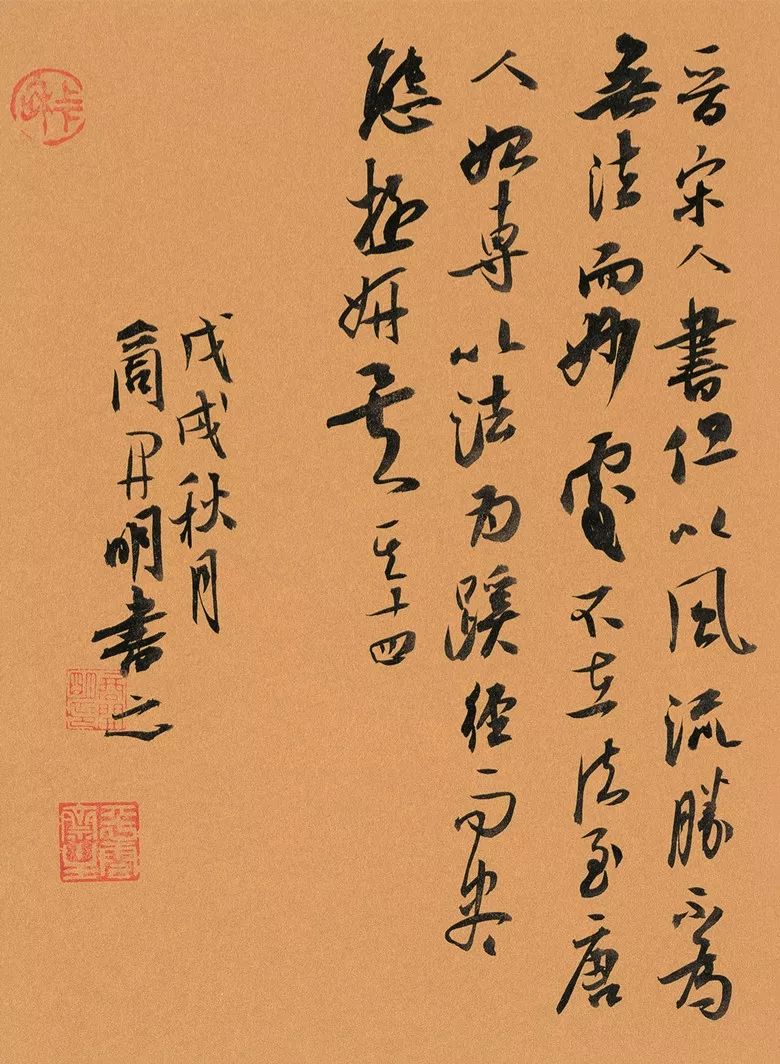 晋宋人書但以風流勝不為
無法而妙處不在法至唐
人始專以法為蹊徑而盡
態極妍矣 其十四
戊戌秋月
商开明書之